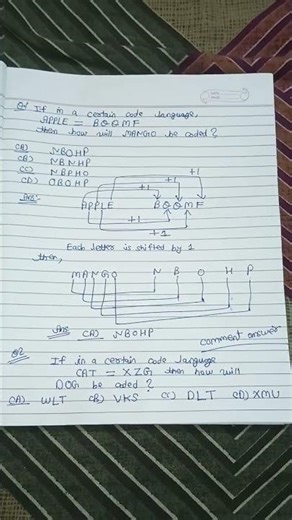 Q1 If in a certain code language,
APPLE = BQQMF
then how will MANGO be coded?
(A) NBOHP
(B) NBNHP
(C) NBPHO
(D) OBOHP
+1
+1
+1
Ans:- APPLE BQQMF
+1
+1
Each letter is shifted by 1
then,
MANGO N B O H P
Ans (A) NBOHP
comment answer
Q2 If in a certain code language
CAT = XZG then how will
DOG be coded?
(A) WLT (B) VKS (C) DLT (D) XMU